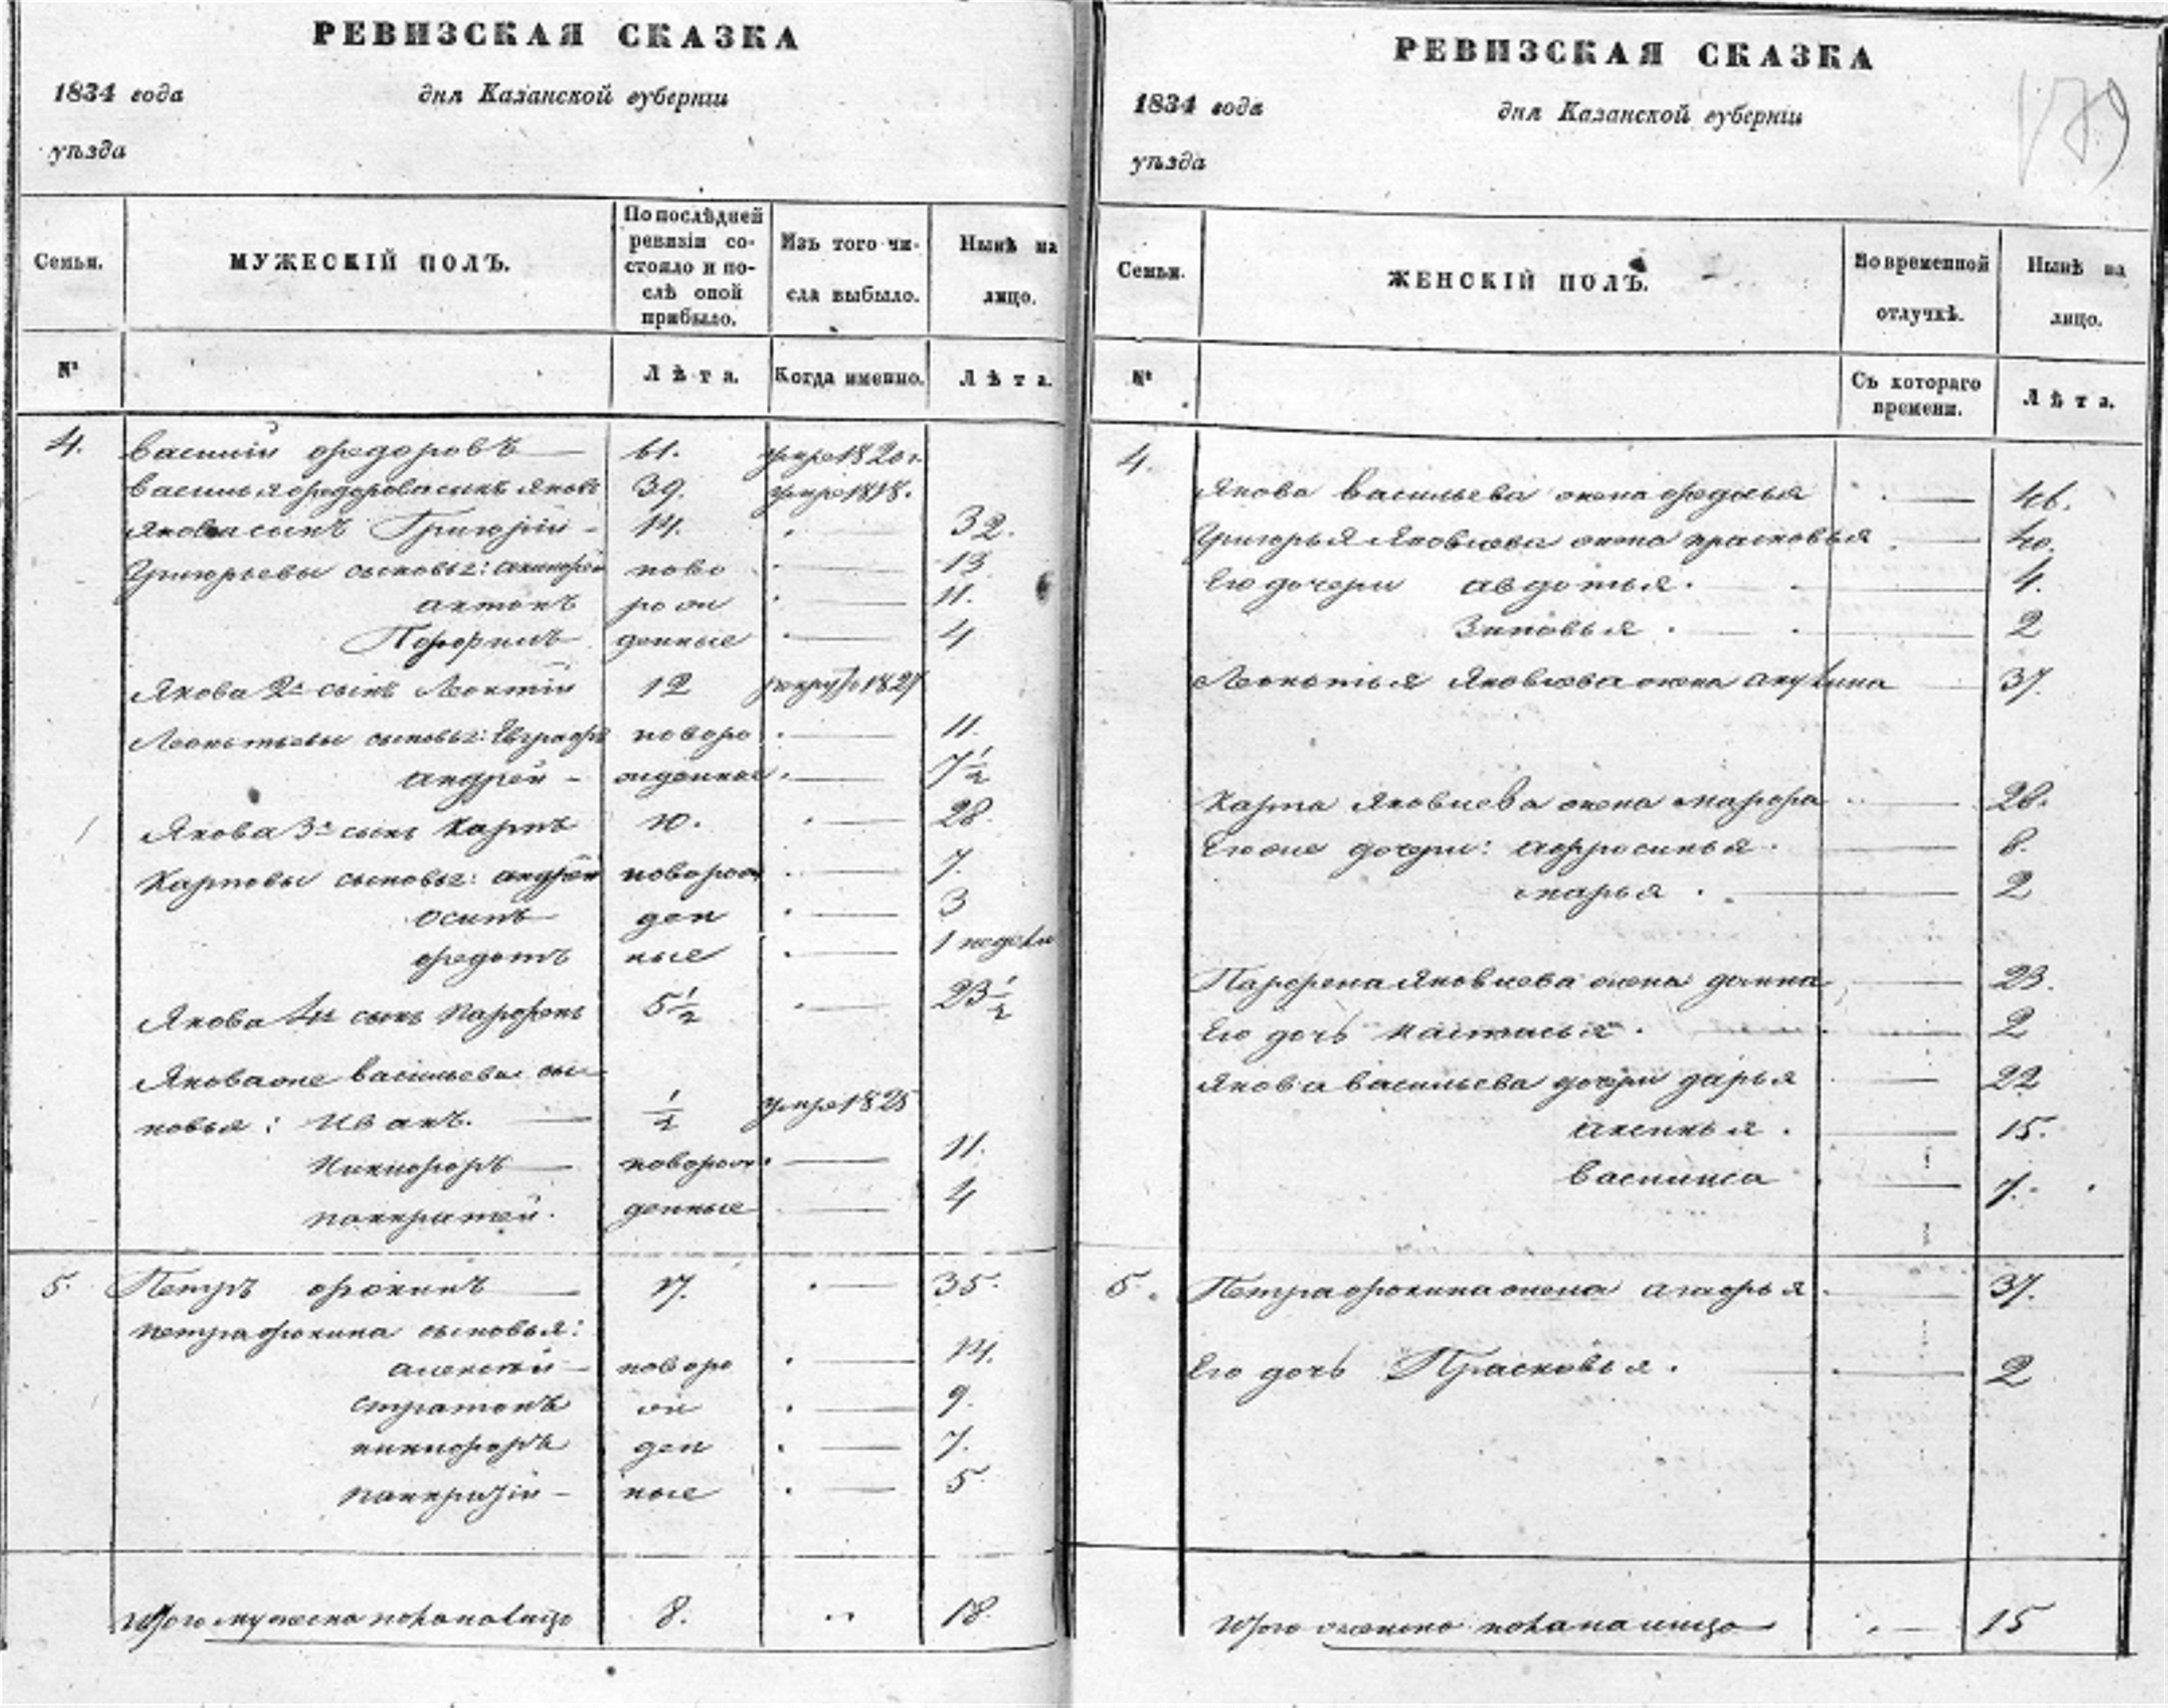 РЕВИЗСКАЯ СКАЗКА
1834 года дня Казанской губернiи
уѣзда
Семьи. МУЖЕСКIЙ ПОЛЪ. По послѣдней ревизiи со- стояло и по- слѣ оной прибыло. Изъ того чи- сла выбыло. Нынѣ на лицо.
№ Лѣта. Когда именно. Лѣта.
4. Василiй Федоровъ 61. умре 1820 г.
Василья Федорова сынъ Яковъ 39. умре 1818.
Якова сынъ Григорiй 14. 32.
Григорьевы сыновья: Никифоръ ново 13
антонъ рож 11.
Порфилъ денные 4
Якова 2й сынъ Леонтiй 12 рекрут 1827
Леонтьевы сыновья: Евграфъ новоро 11.
андрей жденные 7½
Якова 3й сынъ Карпъ 10. 28
Карповы сыновья: андрейноворож 7.
осипъ ден 3
федотъ ные 1 недели
Якова 4й сынъ Парфенъ 5½ 23½
Якова же Васильева сы-
новья: Иванъ. ½ умре 1825
Никифоръ новорож 11.
панкратей. денные 4
5. Петръ фокинъ 17. 35.
петра фокина сыновья:
алексей новоро 14.
стратонъ ж 9.
никифоръ ден 7.
панкратiй ные 5
Итого мужеска пола на лицо 8. 18
РЕВИЗСКАЯ СКАЗКА
179
1834 года дня Казанской губернiи
уѣзда
Семьи. ЖЕНСКIЙ ПОЛЪ. Во временной отлучкѣ. Нынѣ на лицо.
№ Съ котораго времени. Лѣта.
4.
Якова Васильева жена федосья 46.
Григорья Яковлева жена прасковья 40.
Его дочери авдотья. 4.
Зиновья. 2
Леонтья Яковлева жена акулина 37.
Карпа Яковлева жена марфа 28.
Его же дочери: афросинья 6.
марья. 2
Парфена Яковлева жена домна 23.
Его дочь настасья. 2
Якова васильева дочери дарья 22
аксинья. 15.
василиса 7.
5. Петра фокина жена агафья 37.
Его дочь Прасковья. 2
Итого женска пола на лицо 15